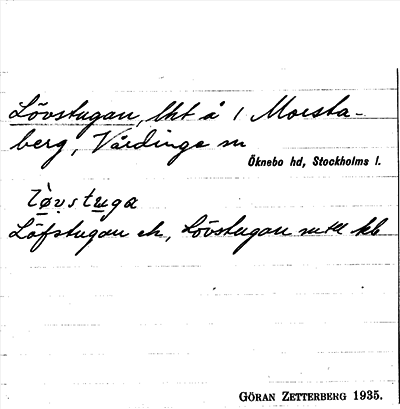 Lövstugan, lht å 1 Morsta-
berg, Vårdinge sn
Öknebo hd, Stockholms l.
lø̀vstuga
Löfstugan ek, Lövstugan mtll kb
GÖRAN ZETTERBERG 1935.